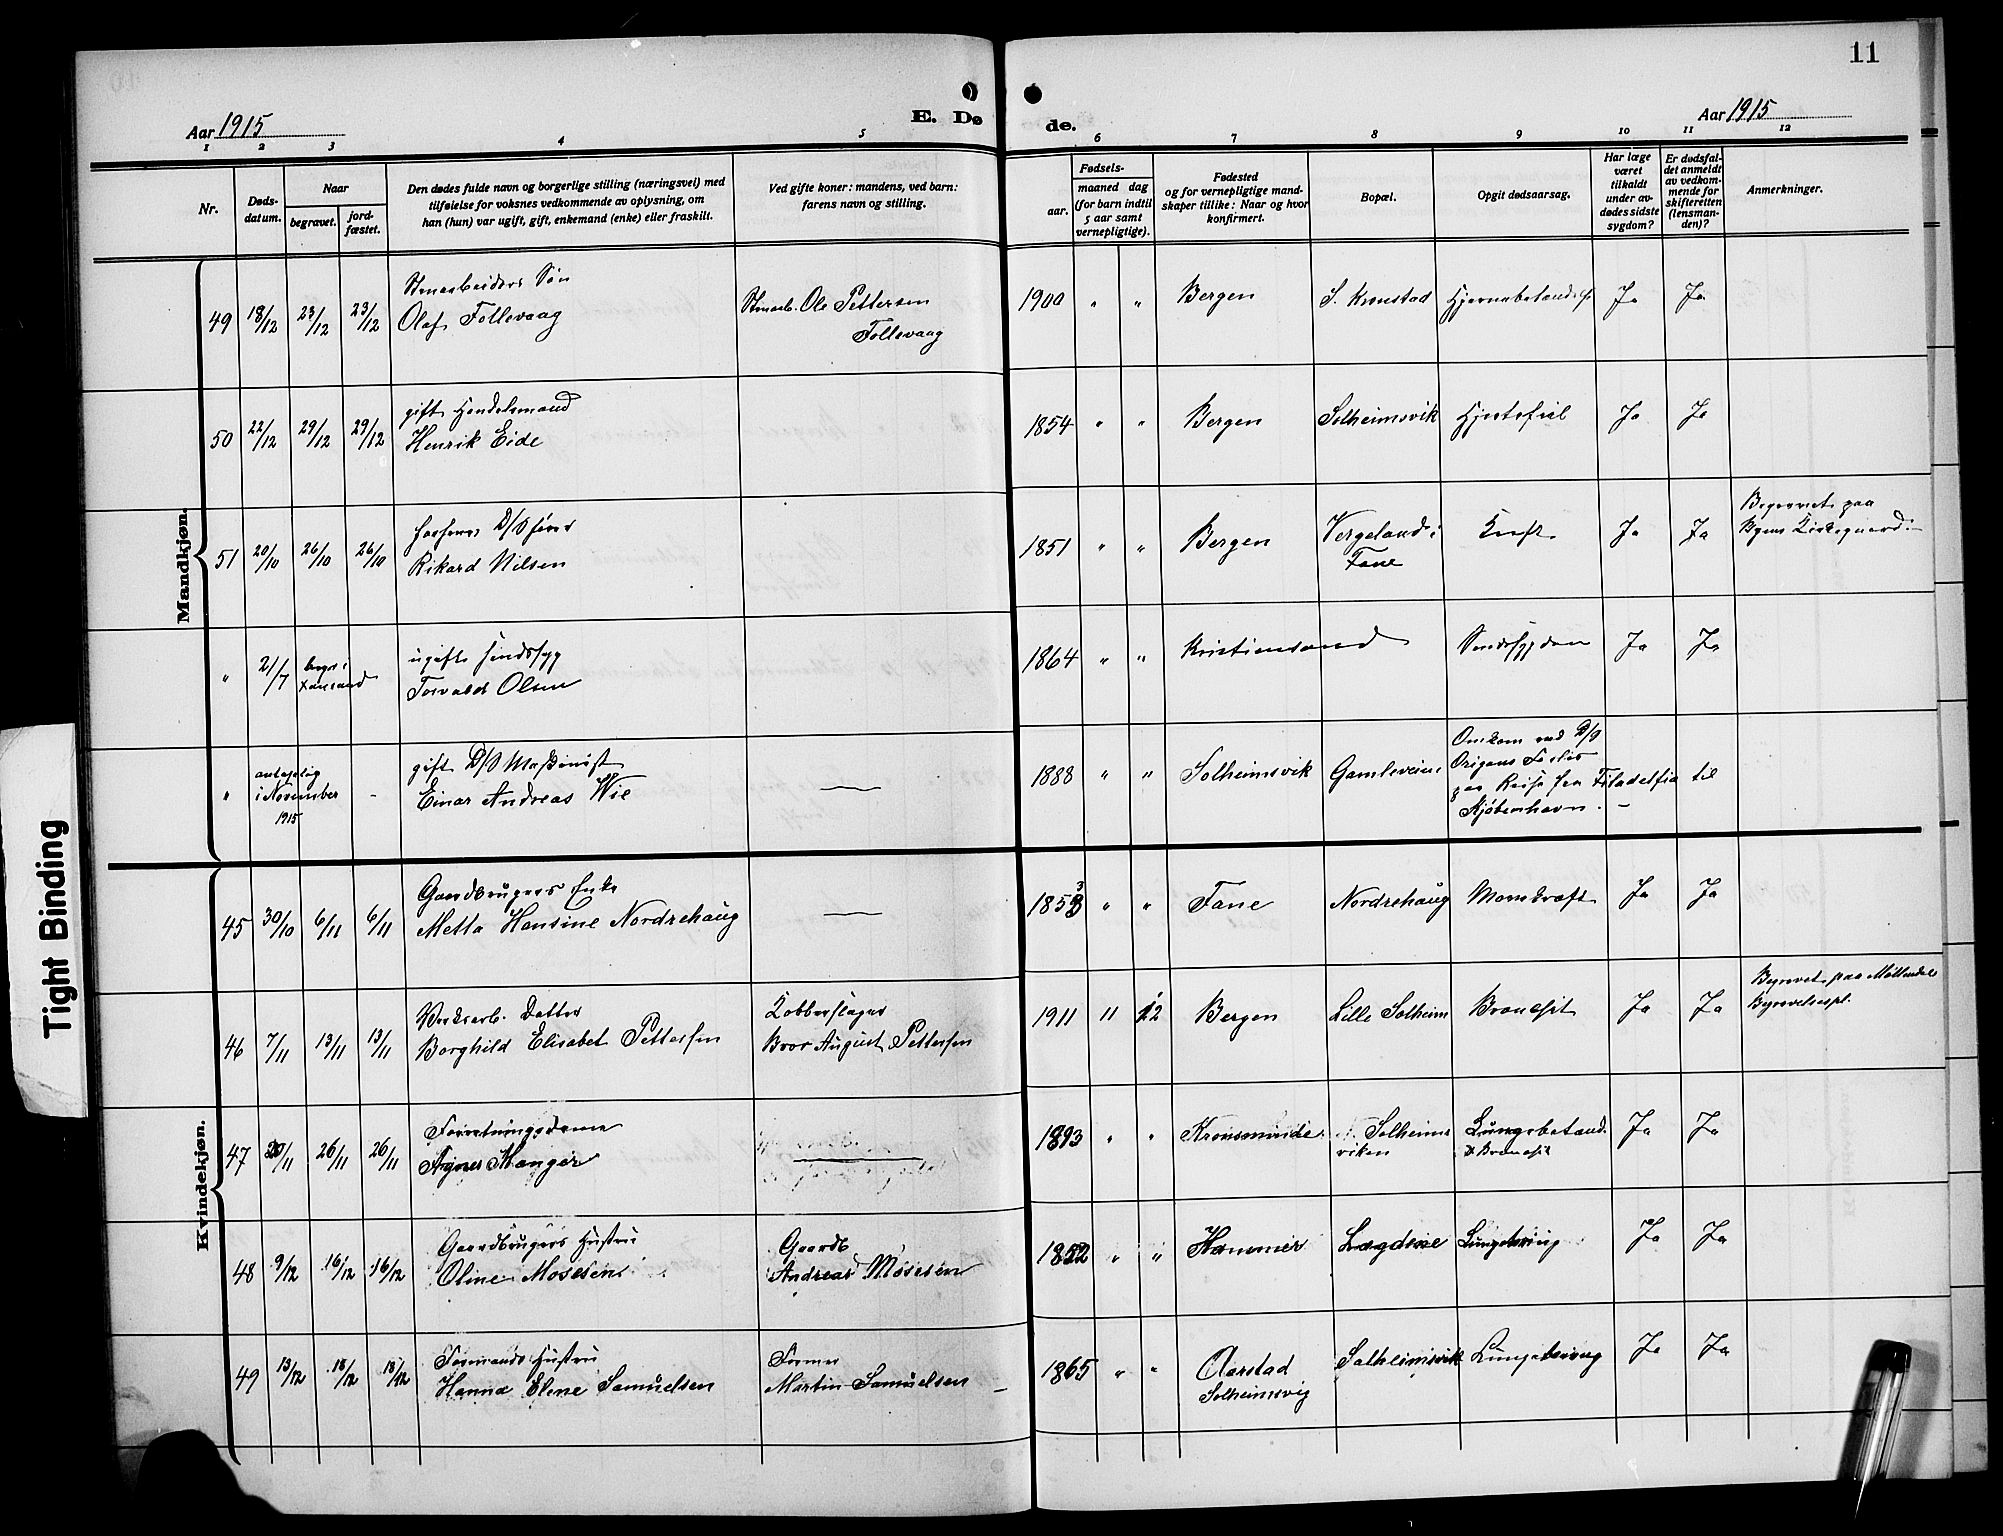 11
Aar 1915
E. Dø
de.
Aar 1915
1 2 3 4 5
6 7 8 9 10 11 12
Nr.
Døds-
datum.
Naar
begravet.
jord-
fæstet.
Den dødes fulde navn og borgerlige stilling (næringsvei) med
tilføielse for voksnes vedkommende av oplysning, om
han (hun) var ugift, gift, enkemand (enke) eller fraskilt.
Ved gifte koner: mandens, ved barn:
farens navn og stilling.
Fødsels-
aar.
maaned dag
(for barn indtil
5 aar samt
vernepligtige).
Fødested
og for vernepligtige mand-
skaper tillike: Naar og hvor
konfirmert.
Bopæl.
Opgit dødsaarsag.
Har læge
været
tilkaldt
under av-
dødes sidste
sygdom?
Er dødsfal-
det anmeldt
av vedkom-
mende for
skifteretten
(lensman-
den)?
Anmerkninger.
Mandkjøn.
Stenarbeiders Søn
49 18/12 23/12 23/12 Olaf Follevaag
Stenarb. Ole Pettersen
Follevaag
1900 " " Bergen S. Kronstad Ja Ja
gift Handelsmand
50 22/12 29/12 29/12 Henrik Eide
1854 " " Bergen Solheimsvik Hjertefeil Ja Ja
51 20/10 26/10 26/10 Rikard Nilsen
1851 " " Bergen Vergeland i
Fane
Ja Ja
Begravet paa
Byens Kirkegaard
ugift sindssyg
" 21/7 begr. i
Torvald Olsen
1864 " " Kristiansand Ja Ja
gift D/S Maskinist
" antagelig
i November
1915
- Einar Andreas Wie
1888 " " Solheimsvik Gamleveien
Omkom med D/S
paa Reise fra Filadelfia til
Kjøbenhavn. -
Kvindekjøn.
Gaardbrugers Enke
45 30/10 6/11 6/11 Metta Hansine Nordrehaug
1853 " " Fane Nordrehaug Marskræft Ja Ja
Verksarb. Datter
46 7/11 13/11 13/11 Borghild Elisabet Pettersen
Kobberslager
Bror August Pettersen
1911 11 12 Bergen Lille Solheim Bronchit Ja Ja
Begravet paa Møllendal
Forretningsdame
47 20/11 26/11 26/11 Agnes Manger
1893 " " Kronsminde Solheims
viken
Lungebetænd.
& Bronchit
Ja Ja
Gaardbrugers Hustru
48 9/12 16/12 16/12 Oline Mosesen
Gaardb
Andreas Mosesen
1852 " " Hammer Lægdene Ja Ja
Formands Hustru
49 13/12 18/12 18/12 Hanna Elene Samuelsen
Former
Martin Samuelsen -
1865 " " Aarstad
Solheimsvig
Solheimsvik Ja Ja
Tight Binding